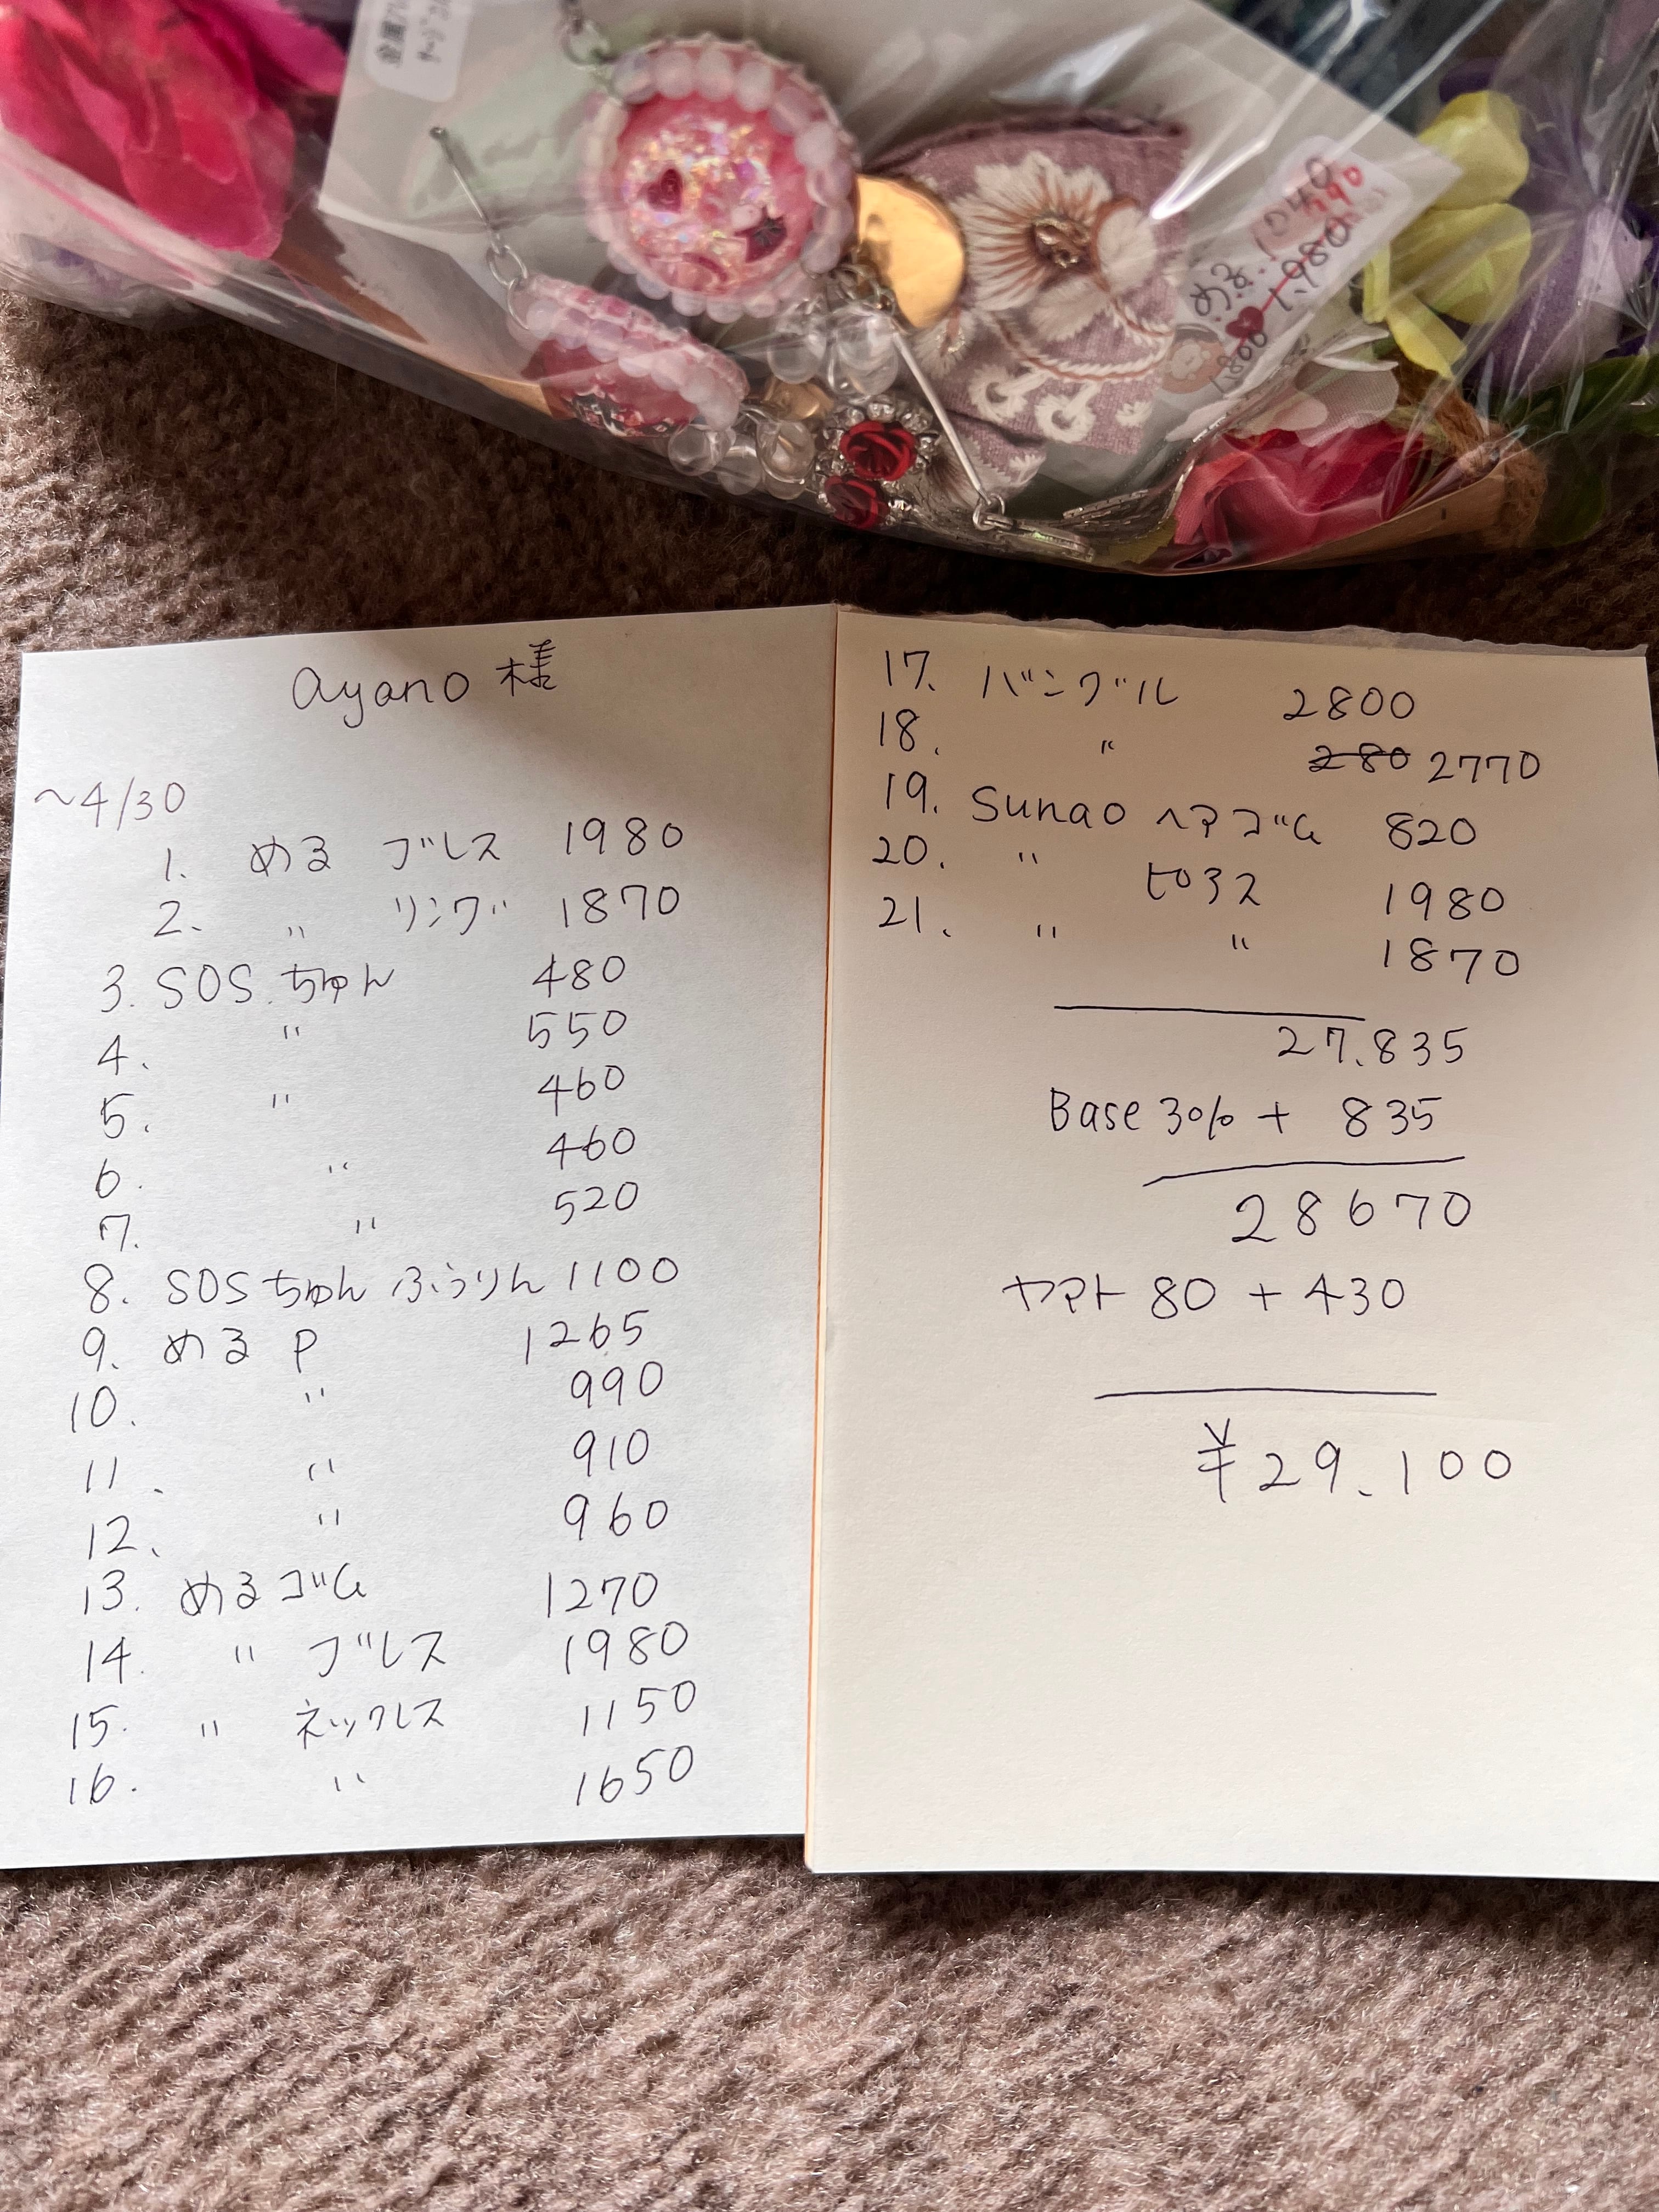 金属アレ
める
1,980
1800
ayano 様
~4/30
1. める ブレス 1980
2. 〃 リング 1870
3. SOS.ちゅん 480
4. 〃 550
5. 〃 460
6. 〃 460
7. 〃 520
8. SOSちゅん ふうりん 1100
9. める P 1265
10. 〃 990
11. 〃 910
12. 〃 960
13. めるゴム 1270
14. 〃 ブレス 1980
15. 〃 ネックレス 1150
16. 〃 1650
17. バングル 2800
18. 〃 280 2770
19. Sunao ヘアゴム 820
20. 〃 ピアス 1980
21. 〃 〃 1870
27.835
Base 3% + 835
28670
ヤマト 80 + 430
¥29.100